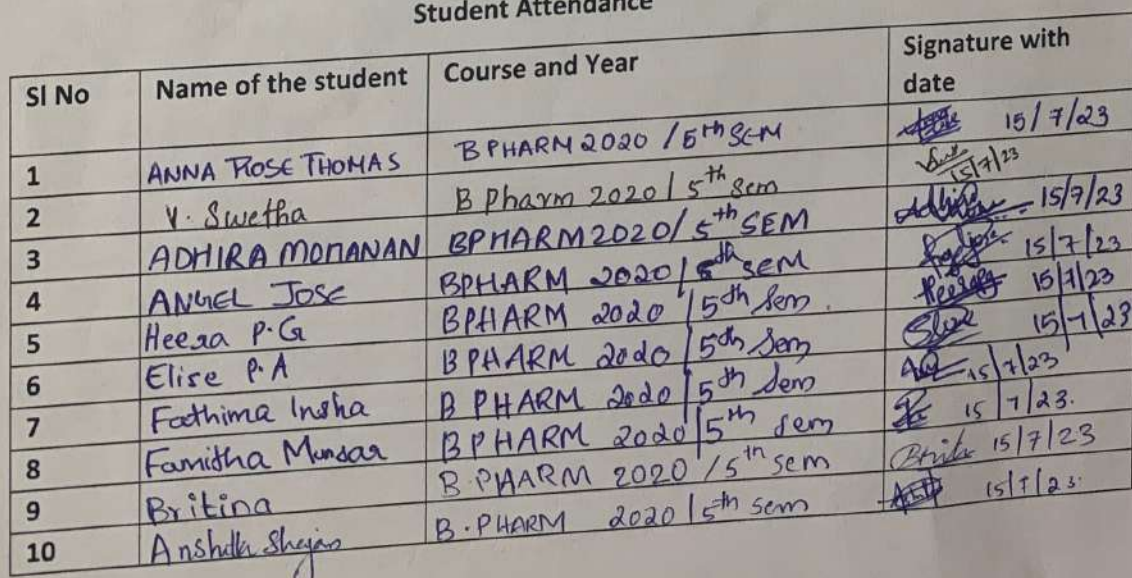 Student Attendance
Sl No Name of the student Course and Year Signature with date
1 ANNA ROSE THOMAS B PHARM 2020 / 5th SEM 15/7/23
2 V. Swetha B Pharm 2020 / 5th Sem 15/7/23
3 ADHIRA MOHANAN BPHARM 2020/ 5th SEM 15/7/23
4 ANGEL JOSE BPHARM 2020 / 5th SEM 15/7/23
5 Heera P.G BPHARM 2020 / 5th Sem. 15/7/23
6 Elise P.A B PHARM 2020 / 5th Sem 15/7/23
7 Fathima Insha B PHARM 2020 / 5th Sem 15/7/23
8 Famitha BPHARM 2020 / 5th sem 15/7/23.
9 Britina B.PHARM 2020 / 5th sem 15/7/23
10 B.PHARM 2020 / 5th sem 15/7/23.